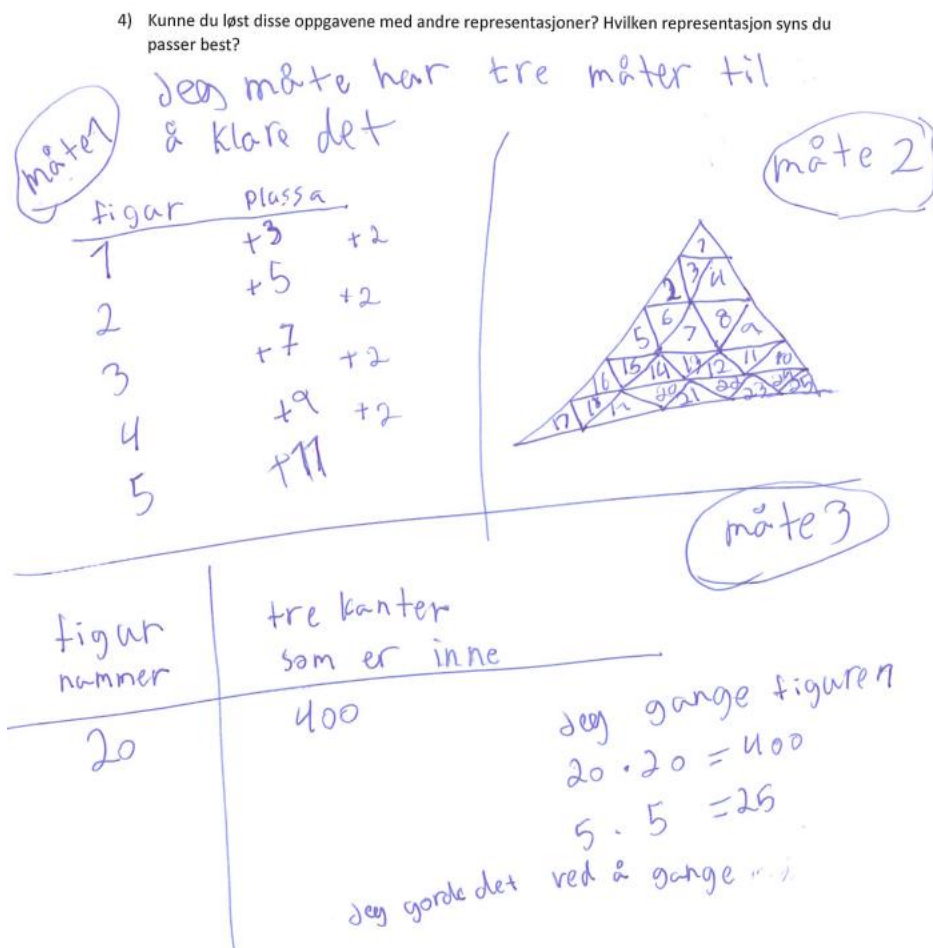 4) Kunne du løst disse oppgavene med andre representasjoner? Hvilken representasjon syns du
passer best?
Jeg måte har tre måter til
å klare det
måte 1
figar plussa
1 +3 +2
2 +5 +2
3 +7 +2
4 +9 +2
5 +11
måte 2
1
2 3 4
5 6 7 8 9
16 15 14 13 12 11 10
17 18 20 21 22 23 25
måte 3
figur
nummer
tre kanter
som er inne
20 400
Jeg gange figuren
20 · 20 = 400
5 · 5 = 25
Jeg gorde det ved å gange